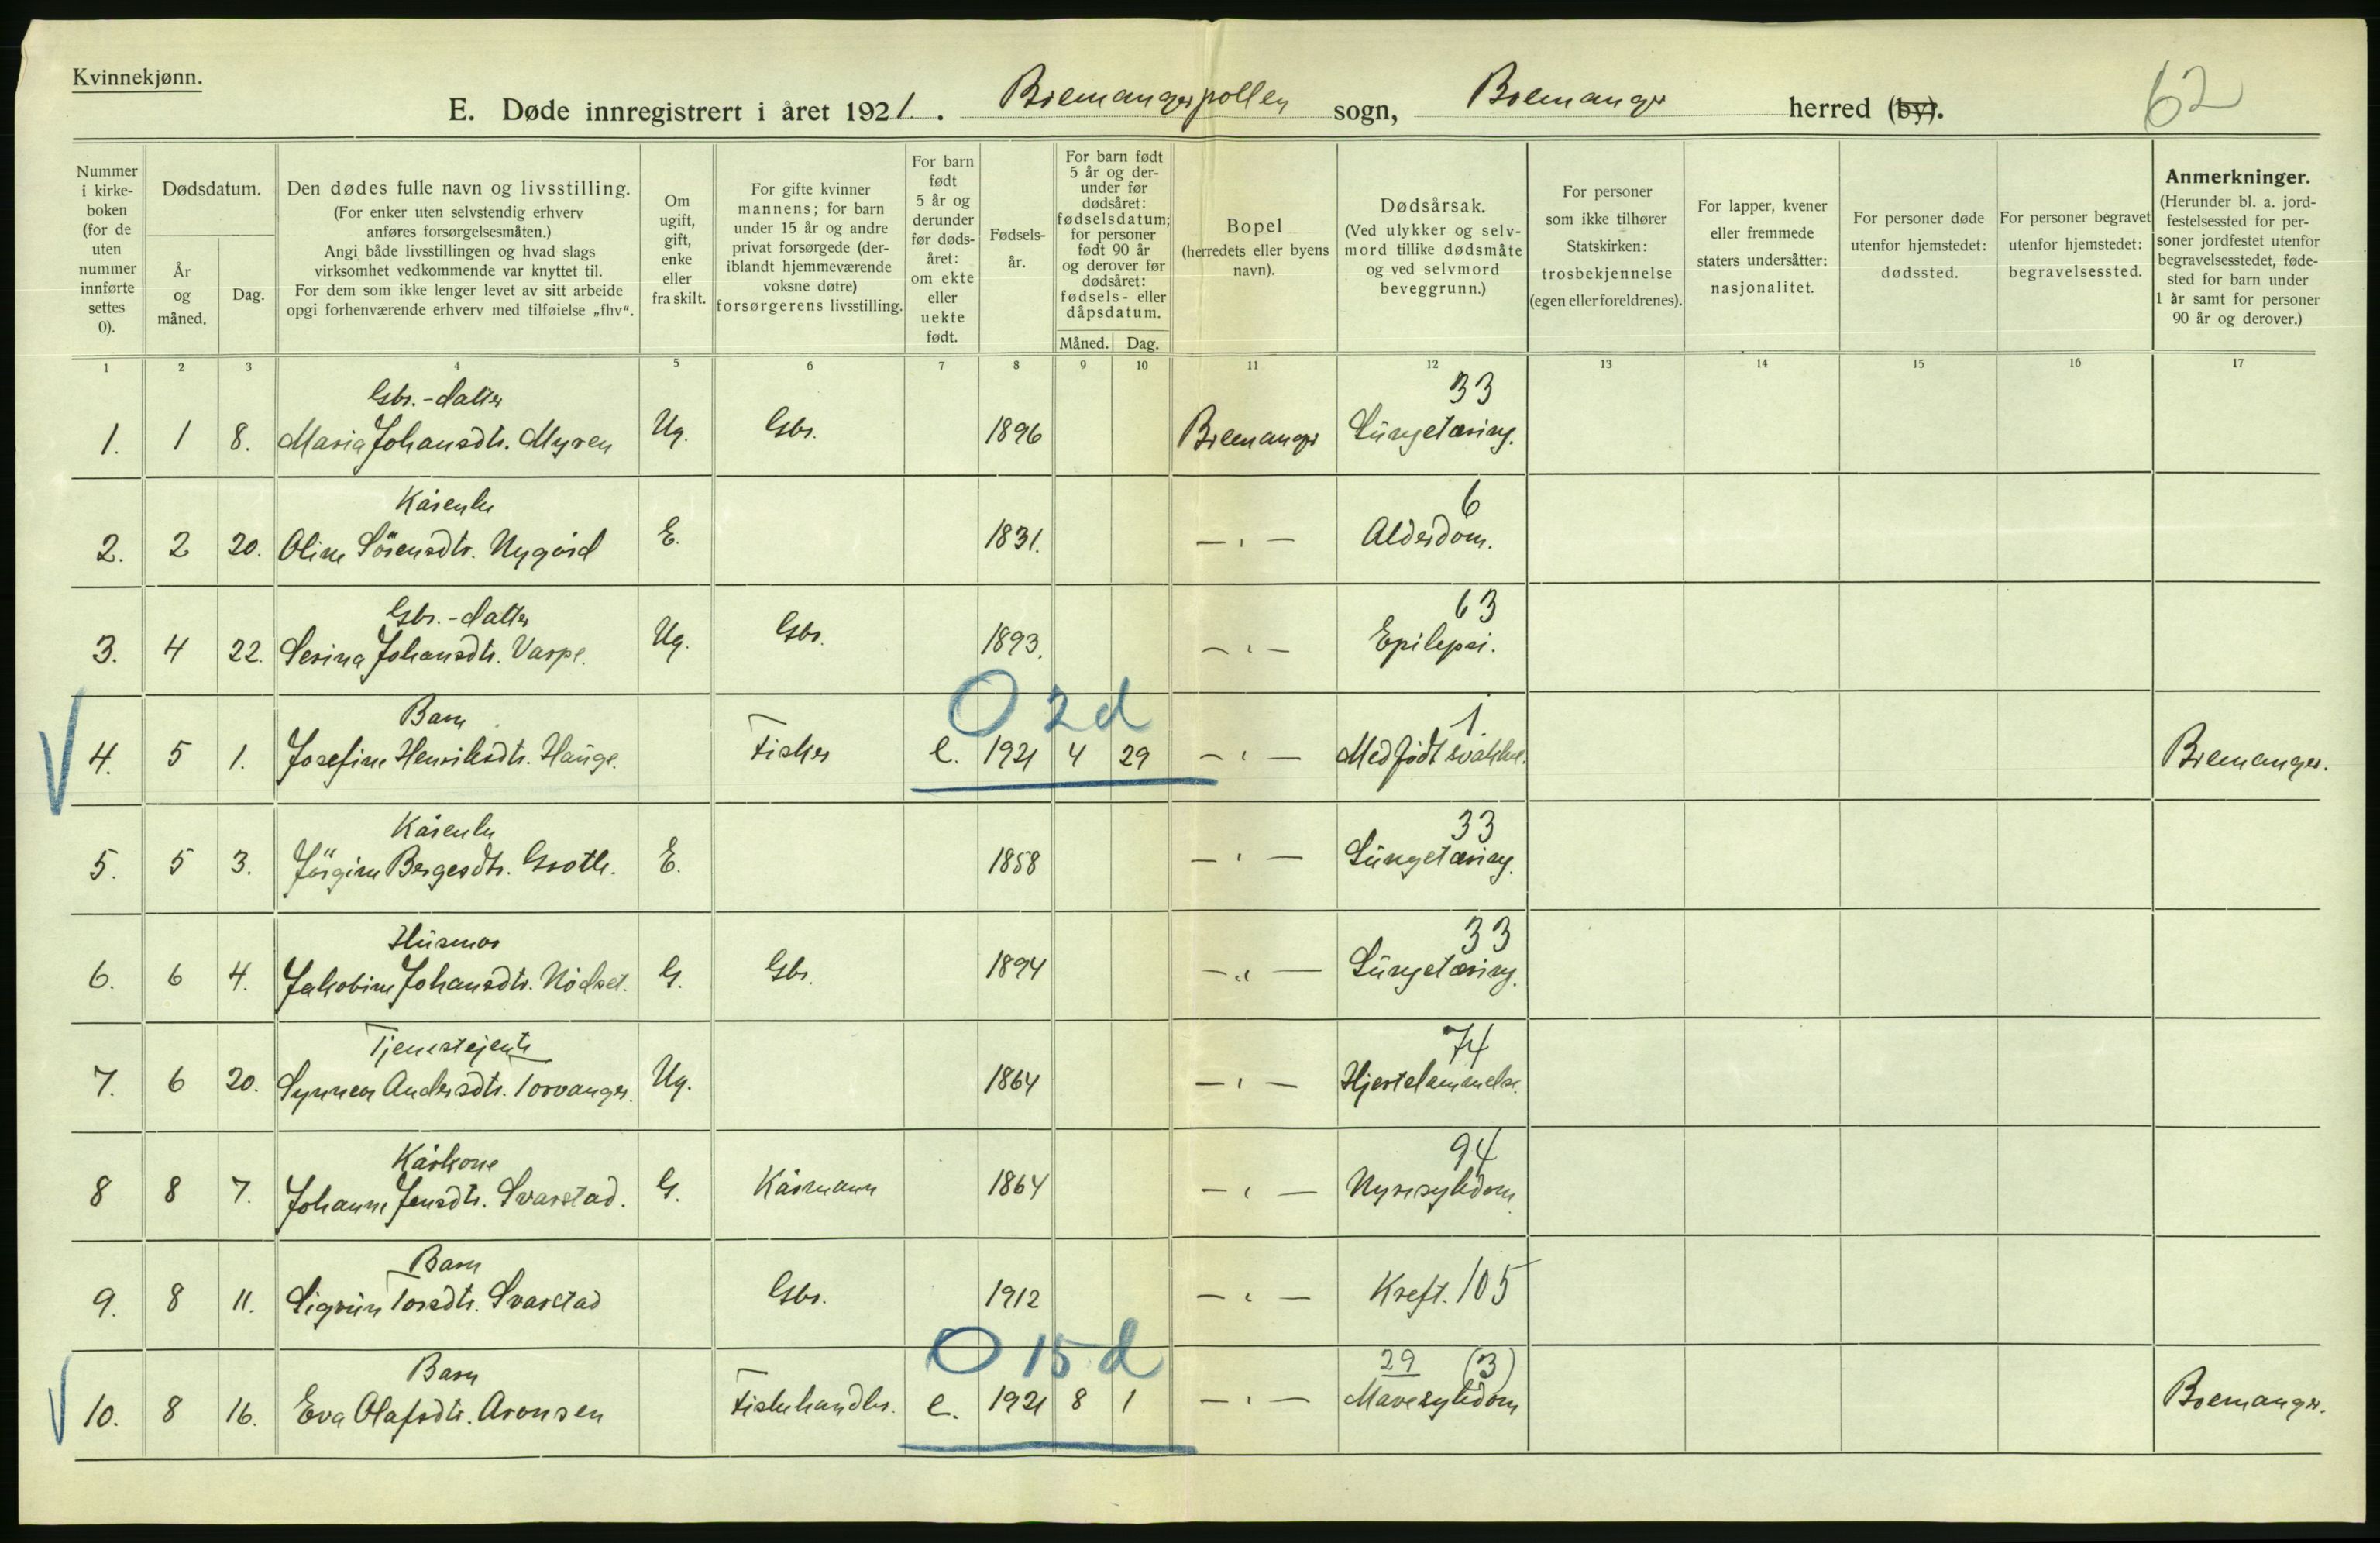 Kvinnekjønn.
E. Døde innregistrert i året 1921. Bremangerpollen sogn, Bremanger herred (by).
62
Nummer i kirke- boken (for de uten nummer innførte settes 0).
Dødsdatum.
År og måned.
Dag.
Den dødes fulle navn og livsstilling.
(For enker uten selvstendig erhverv
anføres forsørgelsesmåten.)
Angi både livsstillingen og hvad slags
virksomhet vedkommende var knyttet til.
For dem som ikke lenger levet av sitt arbeide
opgi forhenværende erhverv med tilføielse „fhv“.
Om ugift, gift, enke eller fraskilt.
For gifte kvinner
mannens; for barn
under 15 år og andre
privat forsørgede (der-
iblandt hjemmeværende
voksne døtre)
forsørgerens livsstilling.
For barn født 5 år og derunder før døds- året: om ekte eller uekte født.
Fødsels- år.
For barn født
5 år og der-
under før
dødsåret:
fødselsdatum;
for personer
født 90 år
og derover før
dødsåret:
fødsels- eller
dåpsdatum.
Måned. Dag.
Bopel
(herredets eller byens
navn).
Dødsårsak.
(Ved ulykker og selv-
mord tillike dødsmåte
og ved selvmord
beveggrunn.)
For personer
som ikke tilhører
Statskirken:
trosbekjennelse
(egen eller foreldrenes).
For lapper, kvener
eller fremmede
staters undersåtter:
nasjonalitet.
For personer døde
utenfor hjemstedet:
dødssted.
For personer begravet
utenfor hjemstedet:
begravelsessted.
Anmerkninger.
(Herunder bl. a. jord-
festelsessted for per-
soner jordfestet utenfor
begravelsesstedet, føde-
sted for barn under
1 år samt for personer
90 år og derover.)
1 2 3 4 5 6 7 8 9 10 11 12 13 14 15 16 17
Gbr.-datter 33
1. 1 8. Maria Johansdtr. Myren Ug. Gbr. 1896 Bremanger Lungetæring.
Kårenke 6
2. 2 20. Oline Sörensdtr. Nygård E. 1831. — " — Alderdom.
Gbr.-datter 63
3. 4 22. Serina Johansdtr. Varpe. Ug. Gbr. 1893. — " — Epilepsi.
Barn O 2 d 1.
4. 5 1. Josefine Henriksdtr. Hauge. Fisker e. 1921 4 29 — " — Medfödt svakhet. Bremanger.
Kårenke 33
5. 5 3. Jörgine Bergesdtr. Grotle. E. 1858 — " — Lungetæring.
Husmor 33
6. 6 4. Jakobine Johansdtr. Nödset. G. Gbr. 1894 — " — Lungetæring.
Tjenestejente 74
7. 6 20. Synneva Andersdtr. Torvanger. Ug. 1864 — " — Hjertelammelse.
Kårkone 94
8 8 7. Johanne Jensdtr. Svarstad. G. Kårmann 1864 — " — Nyresykdom
Barn
9. 8 11. Sigrun Torsdtr. Svarstad Gbr. 1912 — " — Kreft. 105
Barn O 15 d 29 (3)
10. 8 16. Eva Olafsdtr. Aronsen Fiskehandler. e. 1921 8 1 — " — Mavesykdom Bremanger.